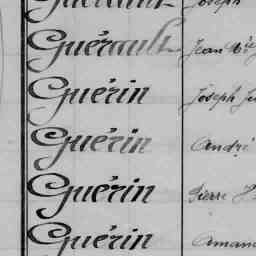 Guérault Joseph
Guérault Jean Mie
Guérin Joseph
Guérin André
Guérin Pierre
Guérin Amand